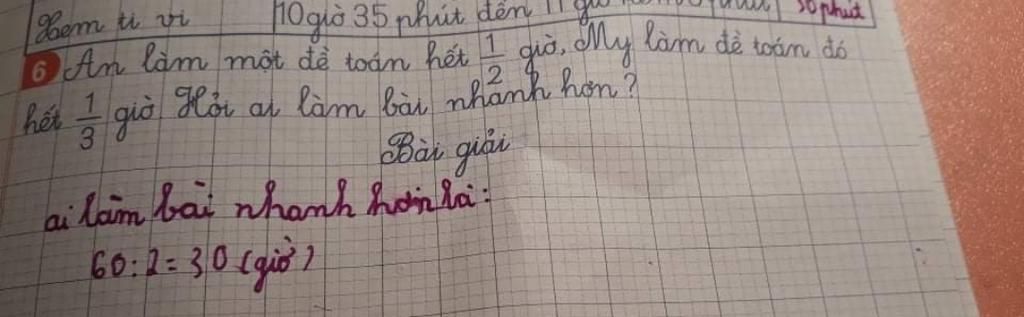 Xem ti vi 10 giờ 35 phút đến 11 giờ 30 phút
6 An làm một đề toán hết 1/2 giờ, My làm đề toán đó
hết 1/3 giờ Hỏi ai làm bài nhanh hơn?
Bài giải
ai làm bài nhanh hơn là:
60:2=30 (giờ)